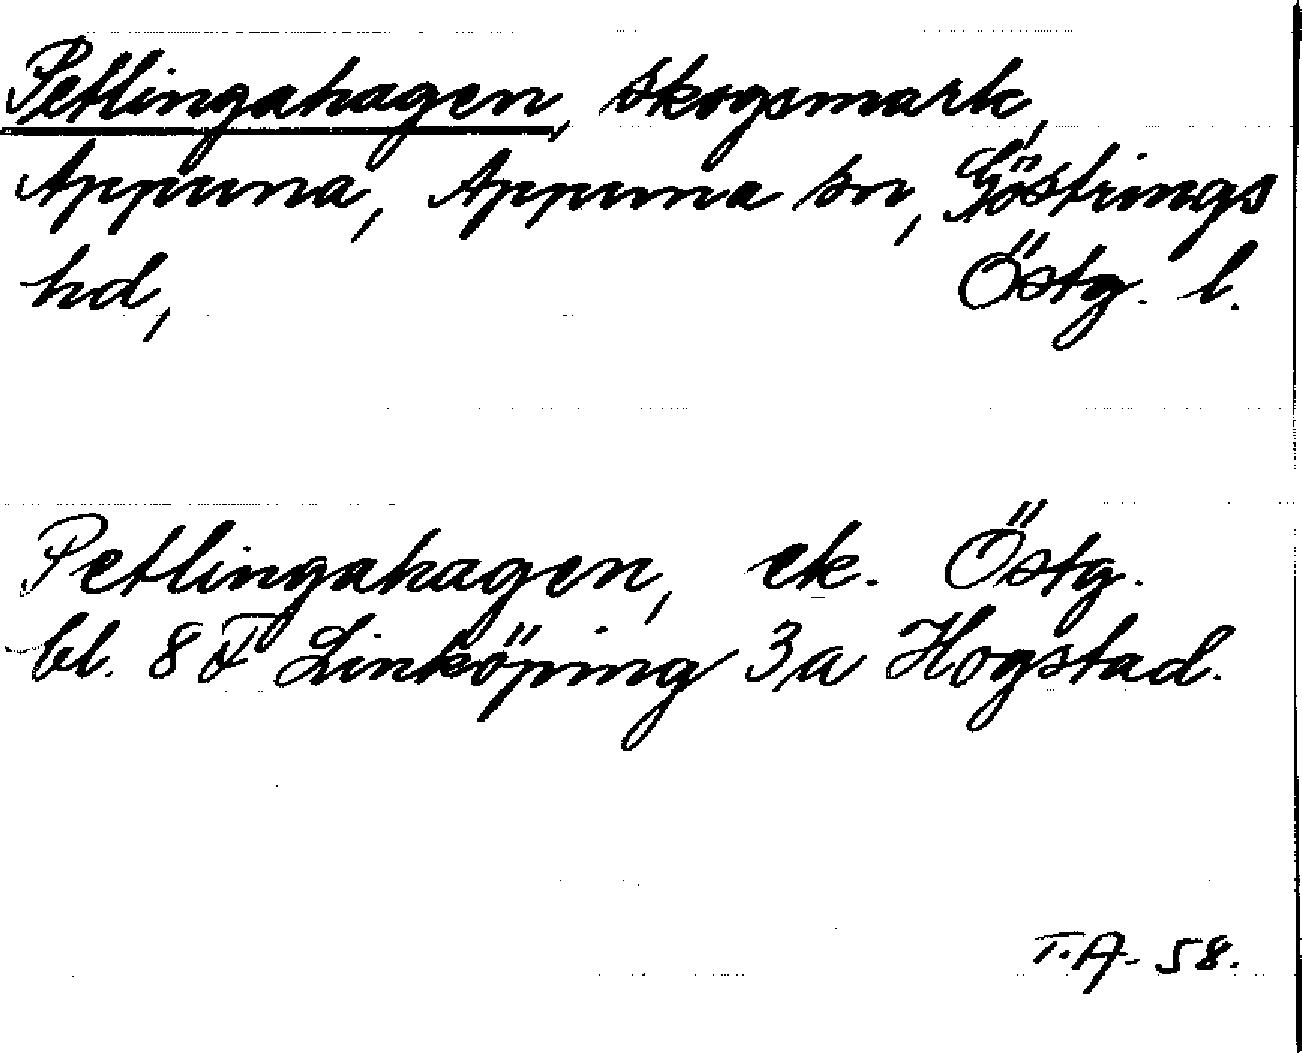 Petlingahagen, skogsmark,
Appuna, Appuna sn, Göstrings
hd, Östg. l.
Petlingahagen, ek. Östg.
bl. 8 F Linköping 3a Hogstad.
T.A- 58.